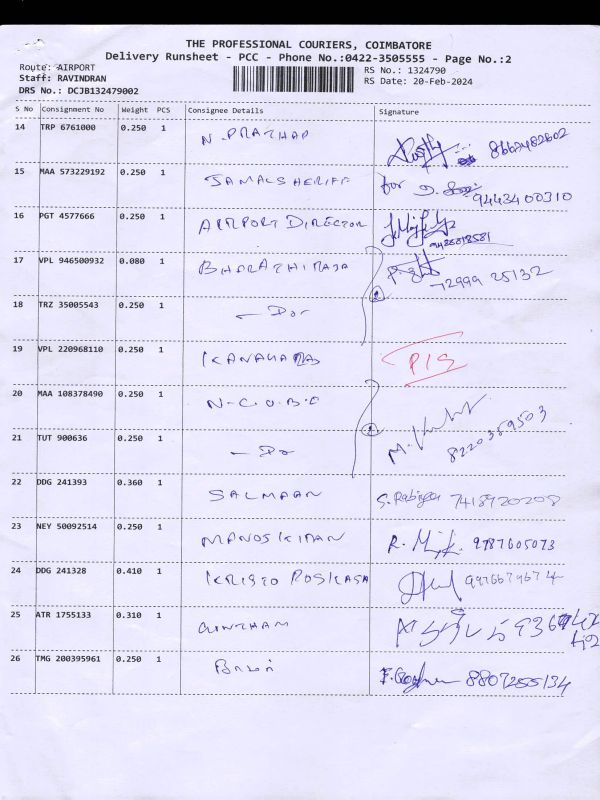 THE PROFESSIONAL COURIERS, COIMBATORE
Delivery Runsheet - PCC - Phone No.:0422-3505555 - Page No.:2
Route: AIRPORT
RS No.: 1324790
Staff: RAVINDRAN
RS Date: 20-Feb-2024
DRS No.: DCJB132479002
S No Consignment No Weight PCS Consignee Details Signature
14 TRP 6761000 0.250 1 N. PRATHAP 8662482602
15 MAA 573229192 0.250 1 JAMALSHERIFF for 9443400310
16 PGT 4577666 0.250 1 AIRPORT DIRECTOR
17 VPL 946500932 0.080 1 BHARATHIRAJA 72999 25132
18 TRZ 35005543 0.250 1 - Do -
19 VPL 220968110 0.250 1 KANAKARAJ
20 MAA 108378490 0.250 1 N.C.O.B.C
21 TUT 900636 0.250 1 - Do 8220369503
22 DDG 241393 0.360 1 SALMAAN 7418920208
23 NEY 50092514 0.250 1 MANOJ KIRAN R. 9787605073
24 DDG 241328 0.410 1 KRISTO 9976679674
25 ATR 1755133 0.310 1 GOWTHAM
26 TMG 200395961 0.250 1 Balaji 8807255134